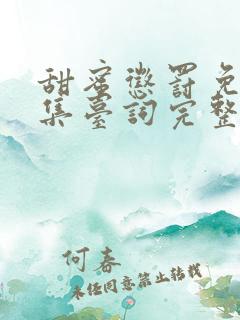 甜蜜懲罰免
集臺詞完整
何春
未經同意禁止轉載